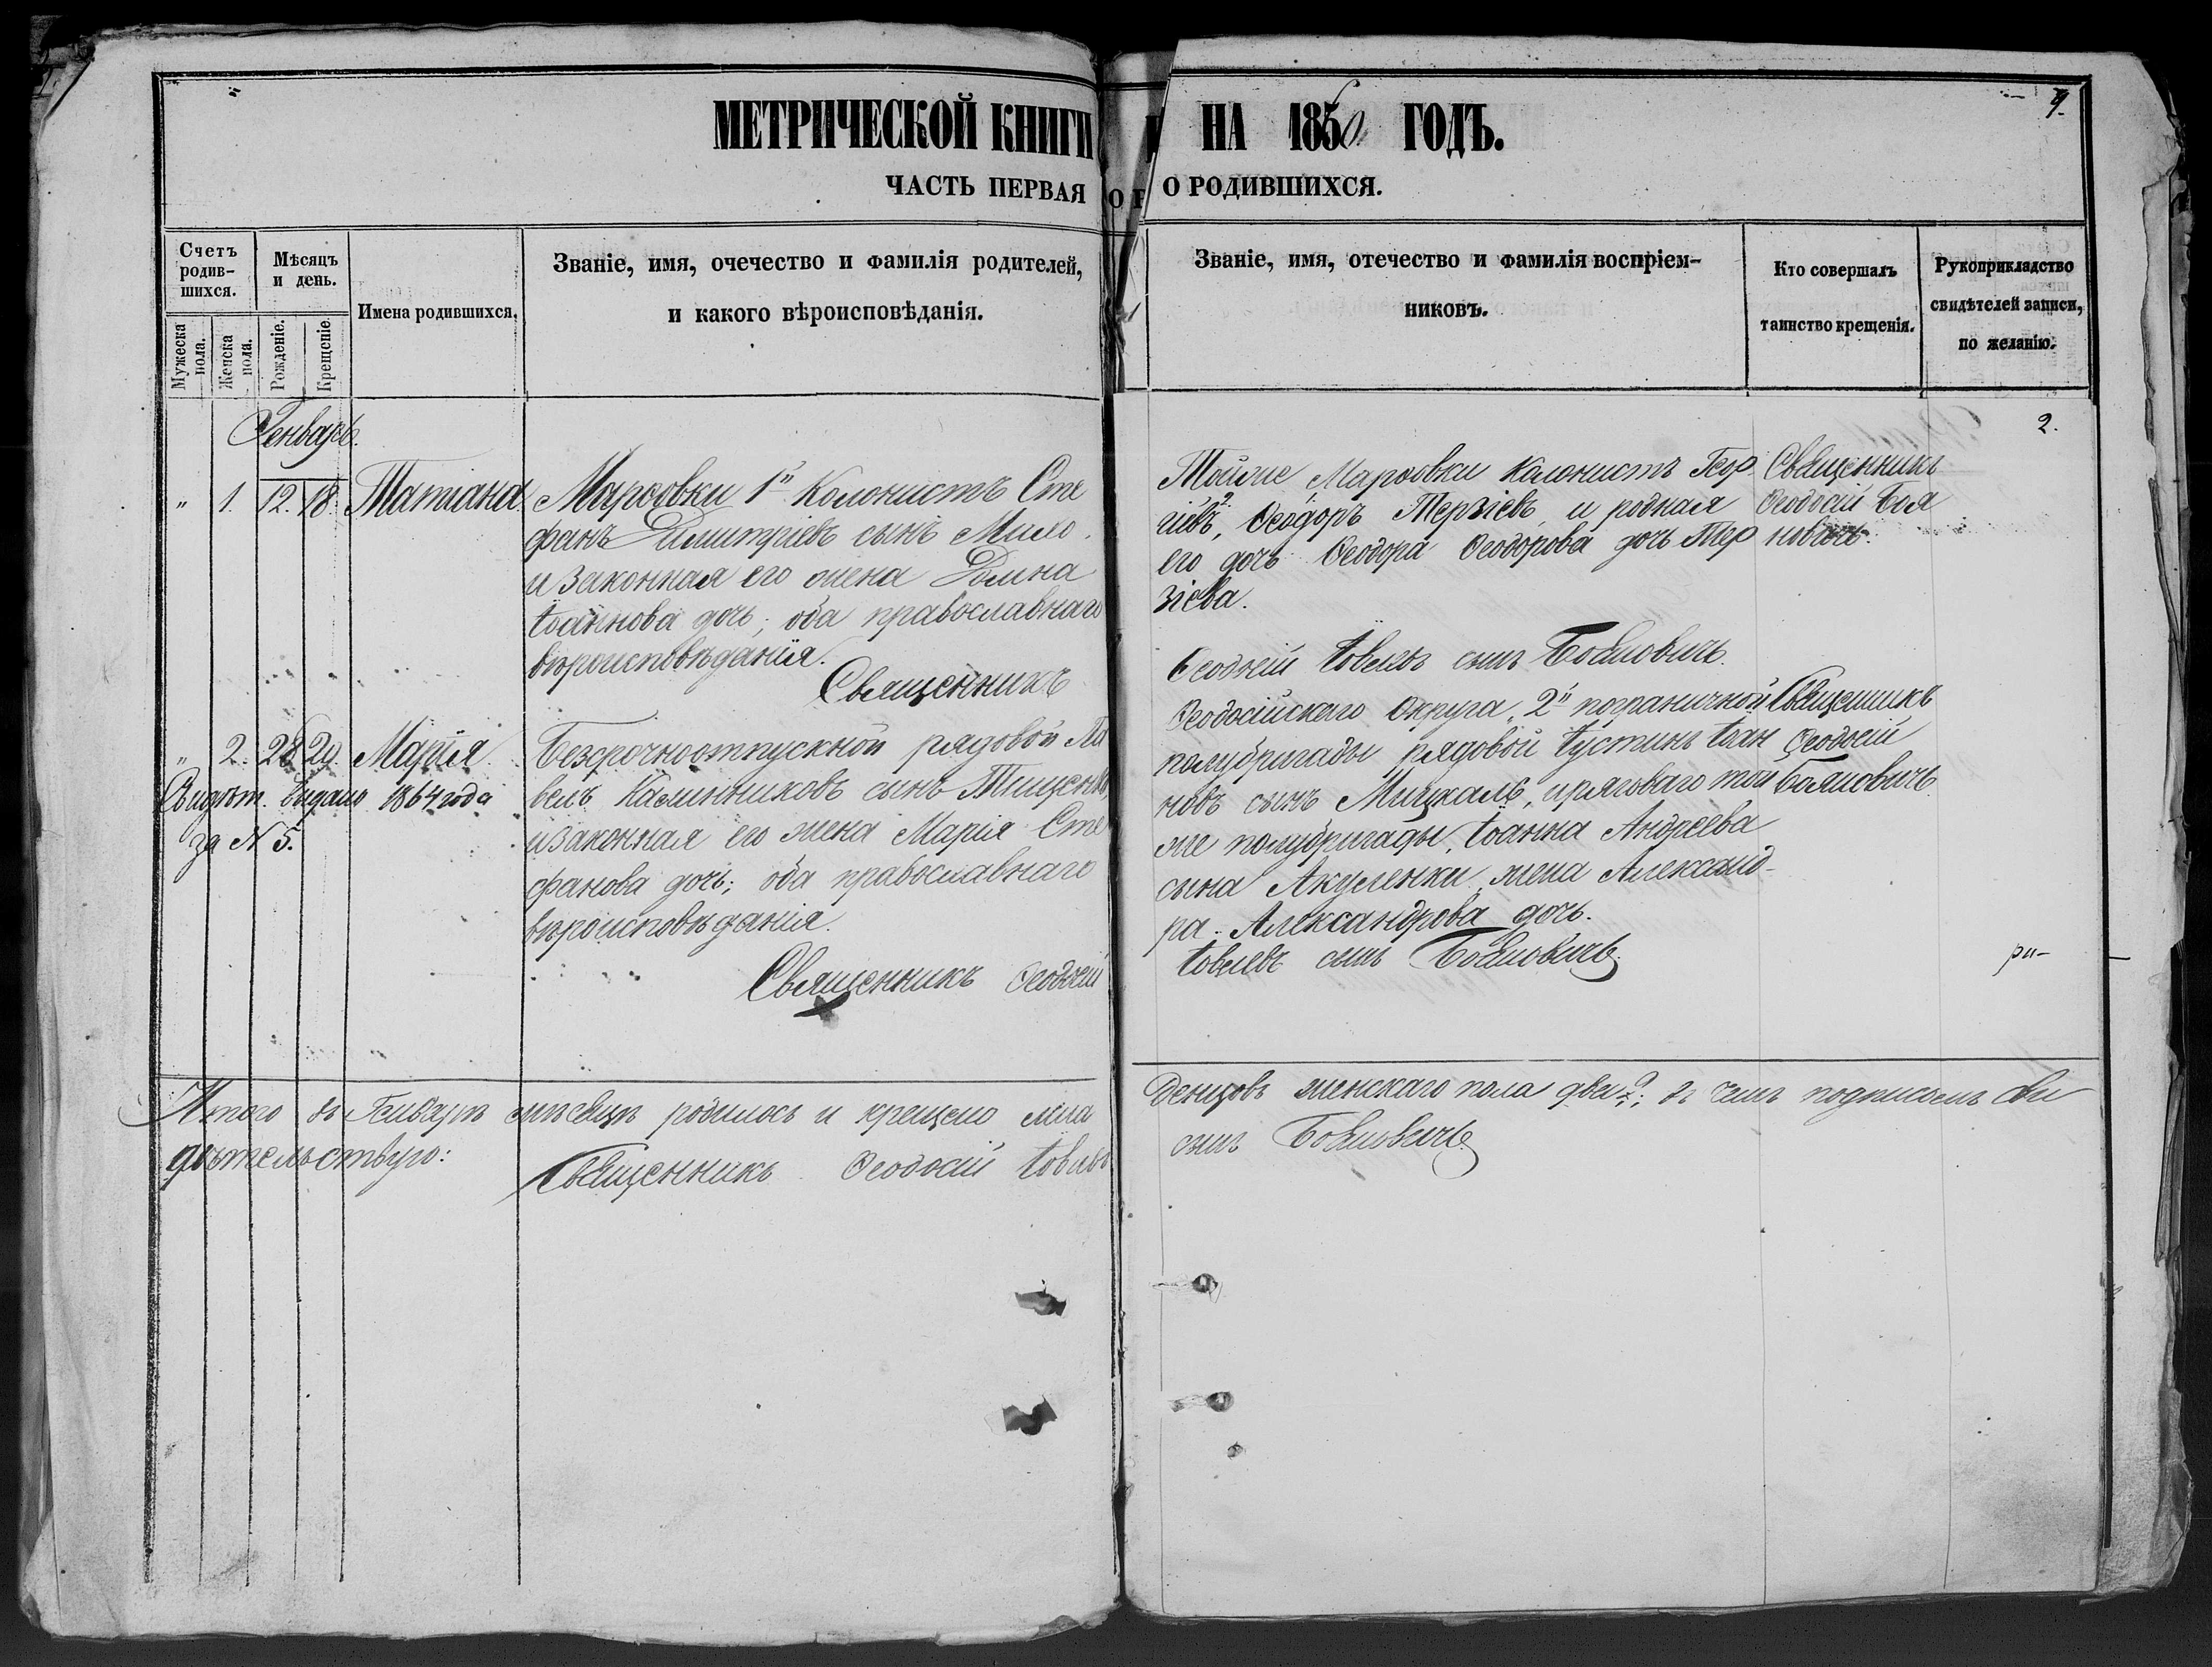 МЕТРИЧЕСКОЙ КНИГИ НА 1860 ГОДЪ.
9.
ЧАСТЬ ПЕРВАЯ О РОДИВШИХСЯ.
Счетъ родив-шихся.
Мужеска пола.
Женска пола.
Мѣсяцъ и день.
Рожденіе.
Крещеніе.
Имена родившихся.
Званіе, имя, очечество и фамилія родителей,
и какого вѣроисповѣданія.
Званіе, имя, отечество и фамилія воспріем-
никовъ.
Кто совершалъ
таинство крещенія.
Рукоприкладство
свидѣтелей записи,
по желанію.
Генварь.
2.
" 1. 12. 18. Татіана
Марфовки 1й Колонистъ Сте
фанъ Димитріевъ сынъ Мило
и законная его жена Домна
Іоаннова дочь; оба православнаго
вѣроисповѣданія.
Священникъ
Тойже Марфовки колонистъ Геор
гіевъ, Ѳеодоръ Терзіевъ, и родная
его дочь Ѳеодора Ѳеодорова дочь Тер
зіева.
Ѳеодосій Іовлевъ сынъ Бояновичъ.
Священникъ
Ѳеодосій Боя
новичъ.
" 2. 28. 29. Марія.
Свидѣт. выдано 1864 года
за N 5.
Безсрочноотпускной рядовой Па
велъ Калинниковъ сынъ Тищенко,
и законная его жена Марія Сте
фанова дочь; оба православнаго
вѣроисповѣданія.
Священникъ Ѳеодосій
Ѳеодосійскаго Округа, 2й пограничной
полубригады рядовой Іустинъ Іоан
новъ сынъ Мицкаль, и рядоваго той
же полубригады, Іоанна Андреева
сына Акуленки жена Александ-
ра Александрова дочь.
Іовлевъ сынъ Бояновичъ.
Священникъ
Ѳеодосій
Бояновичъ.
ри-
Итого въ Генварѣ мѣсяцѣ родилось и крещено мла
денцовъ женскаго пола двѣ 2; въ чемъ подписомъ сви
дѣтельствую:
Священникъ Ѳеодосій Іовлевъ
сынъ Бояновичъ.